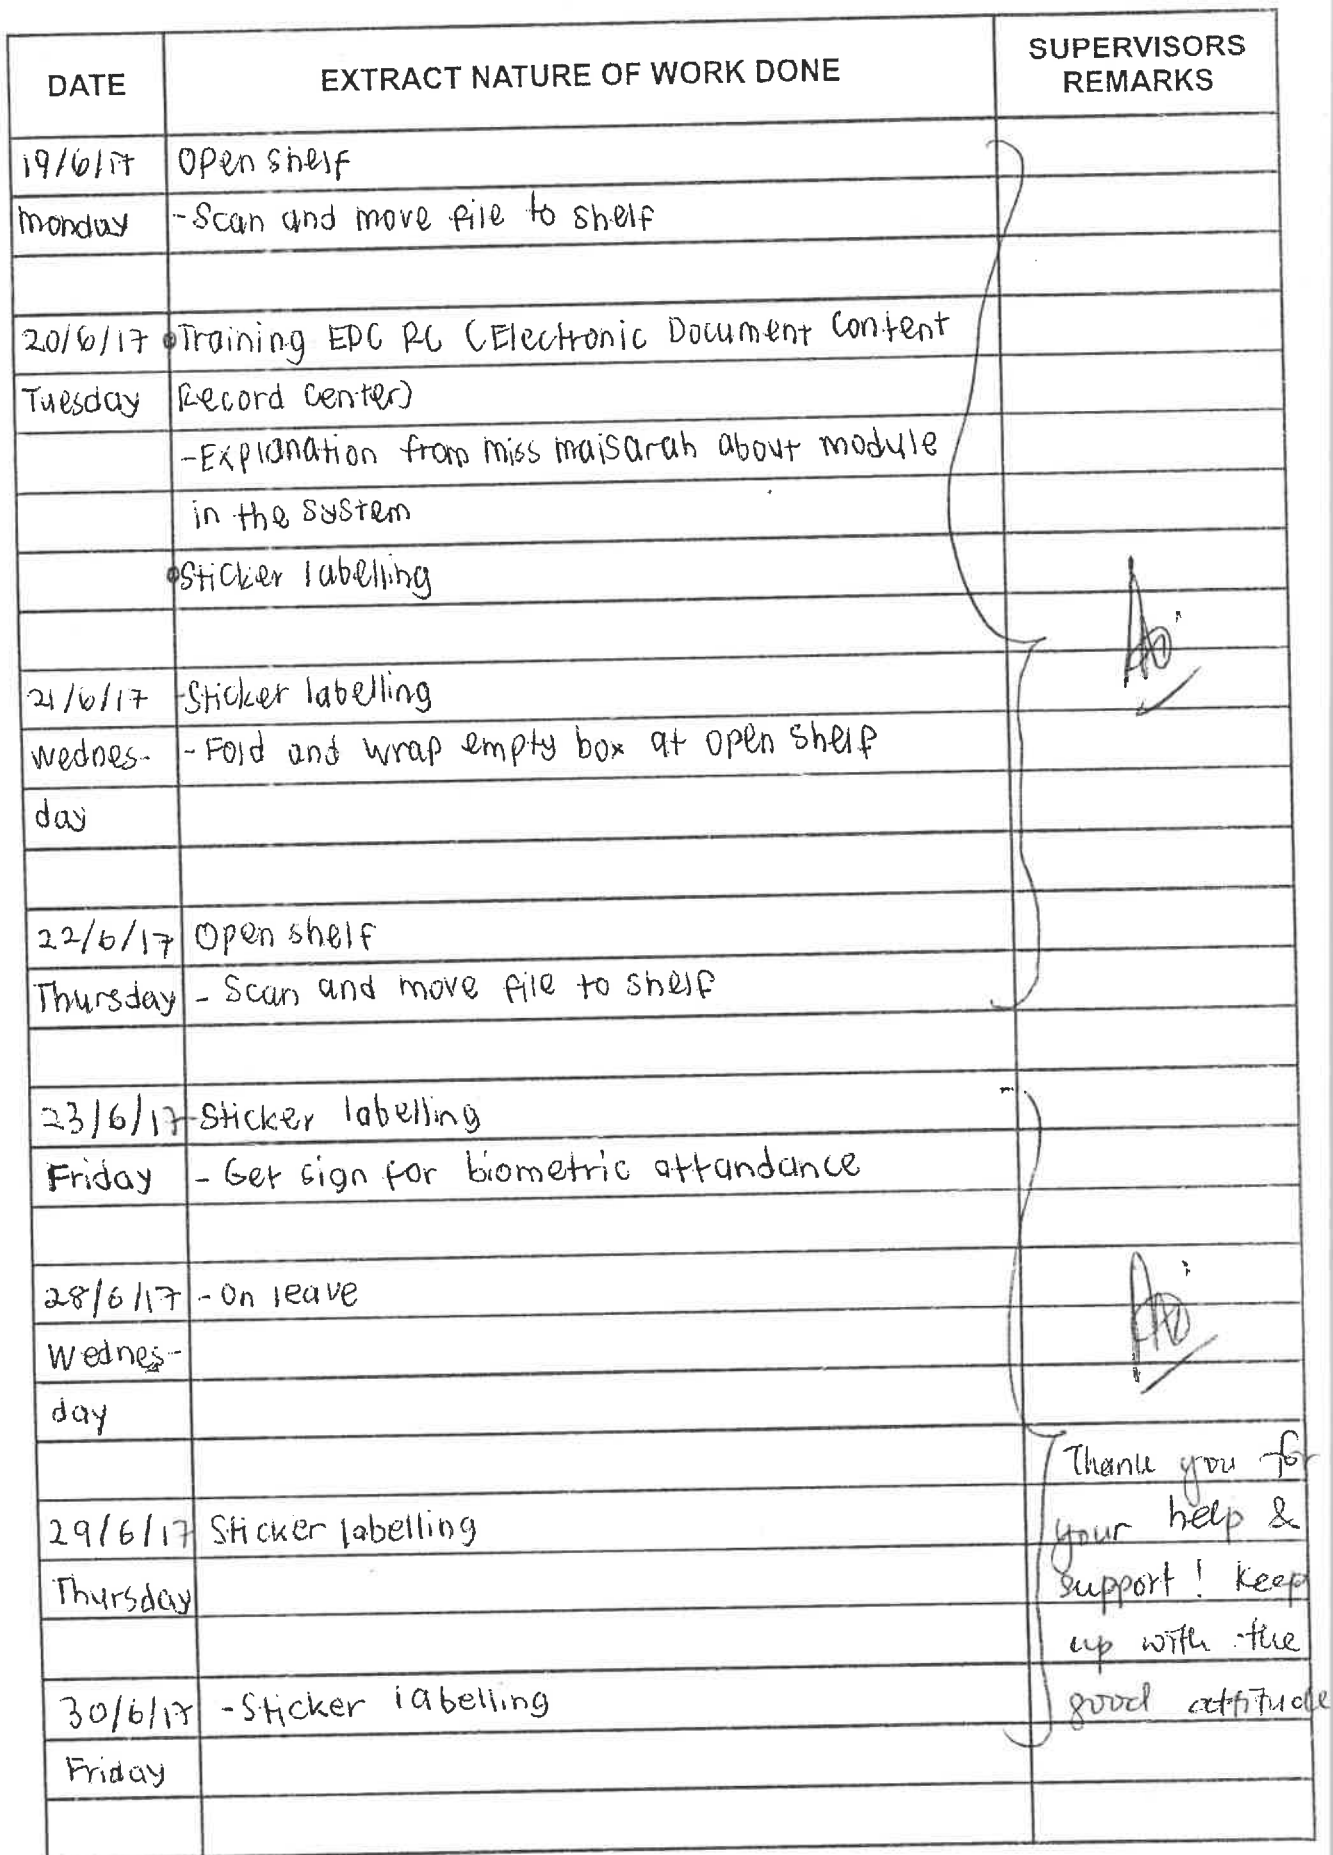 DATE EXTRACT NATURE OF WORK DONE SUPERVISORS REMARKS
19/6/17 Open shelf
Monday - Scan and move file to shelf
20/6/17 • Training EDC RC (Electronic Document Content
Tuesday Record Center)
- Explanation from miss maisarah about module
in the system
• Sticker labelling
21/6/17 - Sticker labelling
Wednes- - Fold and wrap empty box at open shelf
day
22/6/17 Open shelf
Thursday - Scan and move file to shelf
23/6/17 - Sticker labelling
Friday - Get sign for biometric attandance
28/6/17 - On leave
Wednes-
day
Thank you for
29/6/17 Sticker labelling your help &
Thursday support! Keep
up with the
30/6/17 - Sticker labelling good attitude
Friday